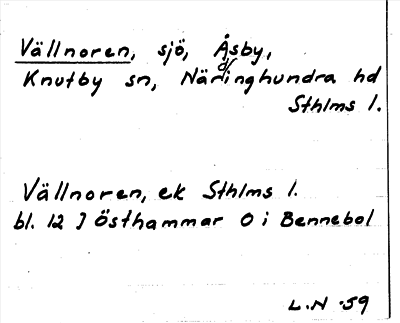 Vällnoren, sjö, Åsby,
Knutby sn, Närdinghundra hd
Sthlms l.
Vällnoren, ek Sthlms l.
bl. 12 J Östhammar O i Bennebol
L.N -59